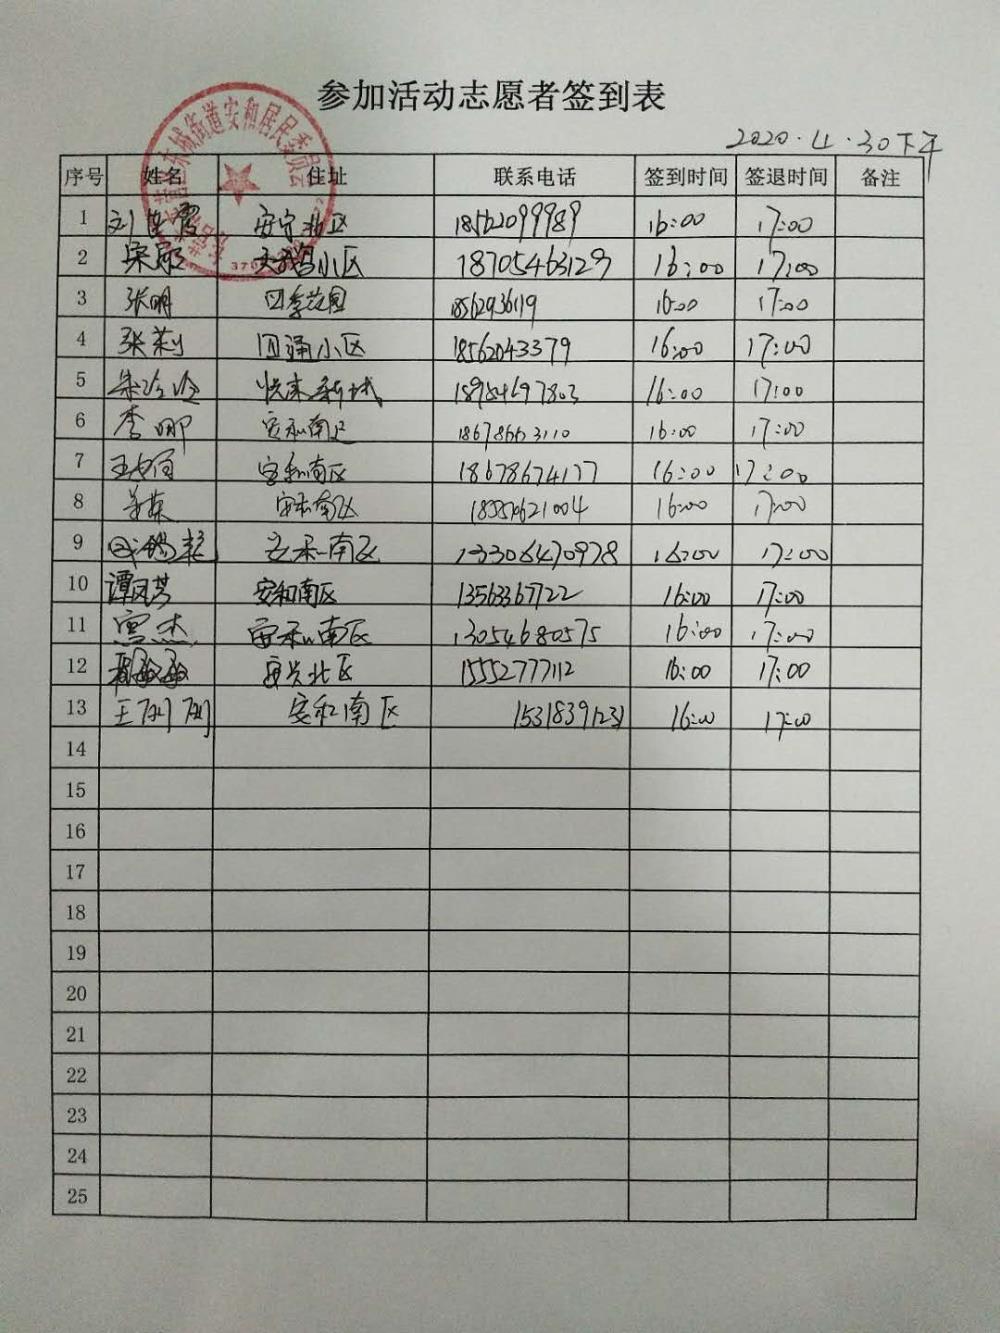 参加活动志愿者签到表
2020.4.30下午
序号 姓名 住址 联系电话 签到时间 签退时间 备注
1 刘 霞 安宁北区 18562099989 16:00 17:00
2 宋 小区 18705463129 16:00 17:00
3 张明 四季花园 18562936119 16:00 17:00
4 张莉 园通小区 18562043379 16:00 17:00
5 朱玲玲 悦来新城 18954697803 16:00 17:00
6 李娜 安和南区 18678663110 16:00 17:00
7 王 安和南区 18678674177 16:00 17:00
8 安和南区 16:00 17:00
9 安和南区 13306470978 16:00 17:00
10 谭凤芳 安和南区 13563367722 16:00 17:00
11 杰 安和南区 13054680575 16:00 17:00
12 敏敏 安兴北区 15552777112 16:00 17:00
13 王丽丽 安和南区 15318391231 16:00 17:00
14
15
16
17
18
19
20
21
22
23
24
25
东城街道安和居民委员会